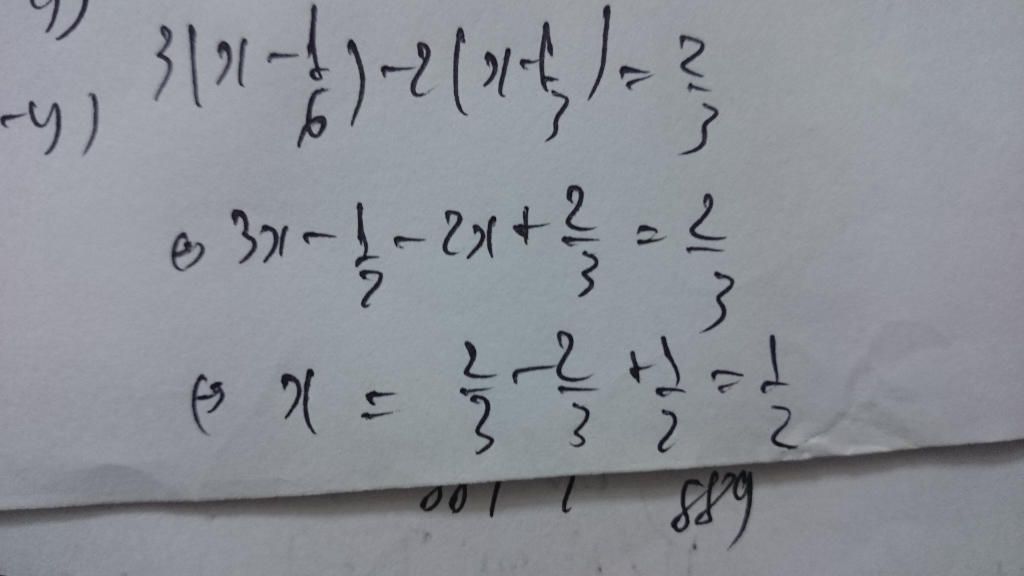 3(x - 1/6) - 2(x - 1/3) = 2/3
-y)
⇔ 3x - 1/2 - 2x + 2/3 = 2/3
⇔ x = 2/3 - 2/3 + 1/2 = 1/2
889